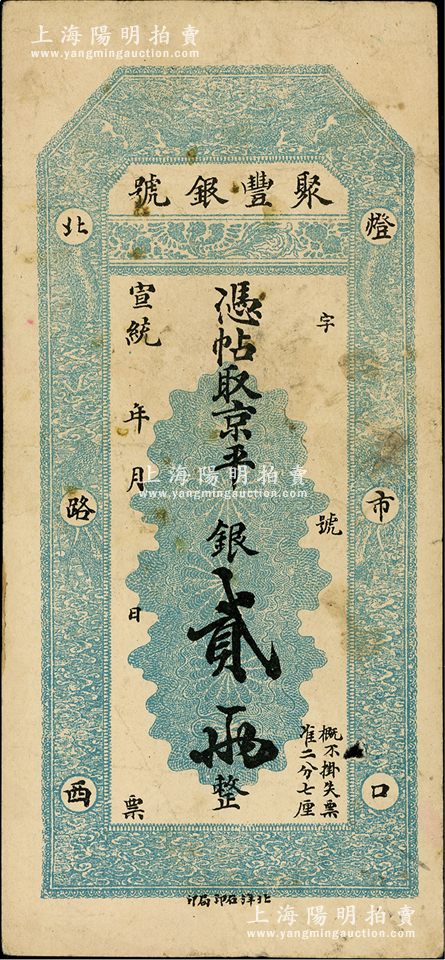 上海陽明拍賣
www.yangmingauction.com
聚豐銀號
燈市口
北路西
字號
憑帖取京平銀貳兩整
宣統年月日票
概不掛失票
准二分七厘
上海陽明拍賣
www.yangmingauction.com
北洋石印局印
上海陽明拍賣
www.yangmingauction.com